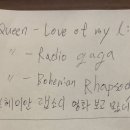 Queen - Love of my l
" - Radio gaga
" - Bohemian Rhapsod
랩소디 영화 보고